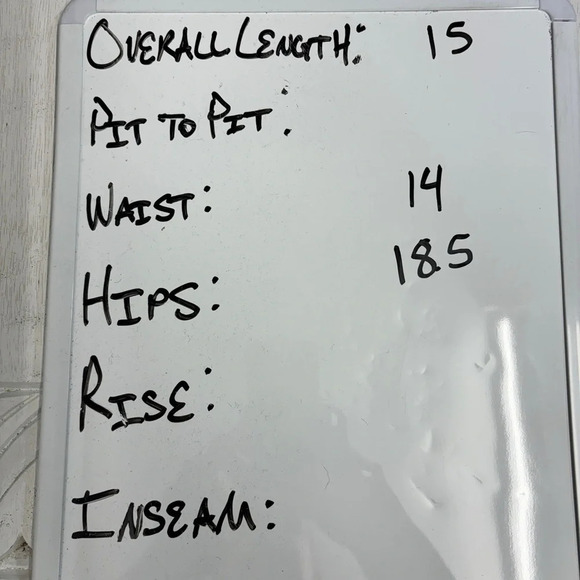 OVERALL LENGTH: 15
PIT TO PIT:
WAIST: 14
HIPS: 18.5
RISE:
INSEAM: